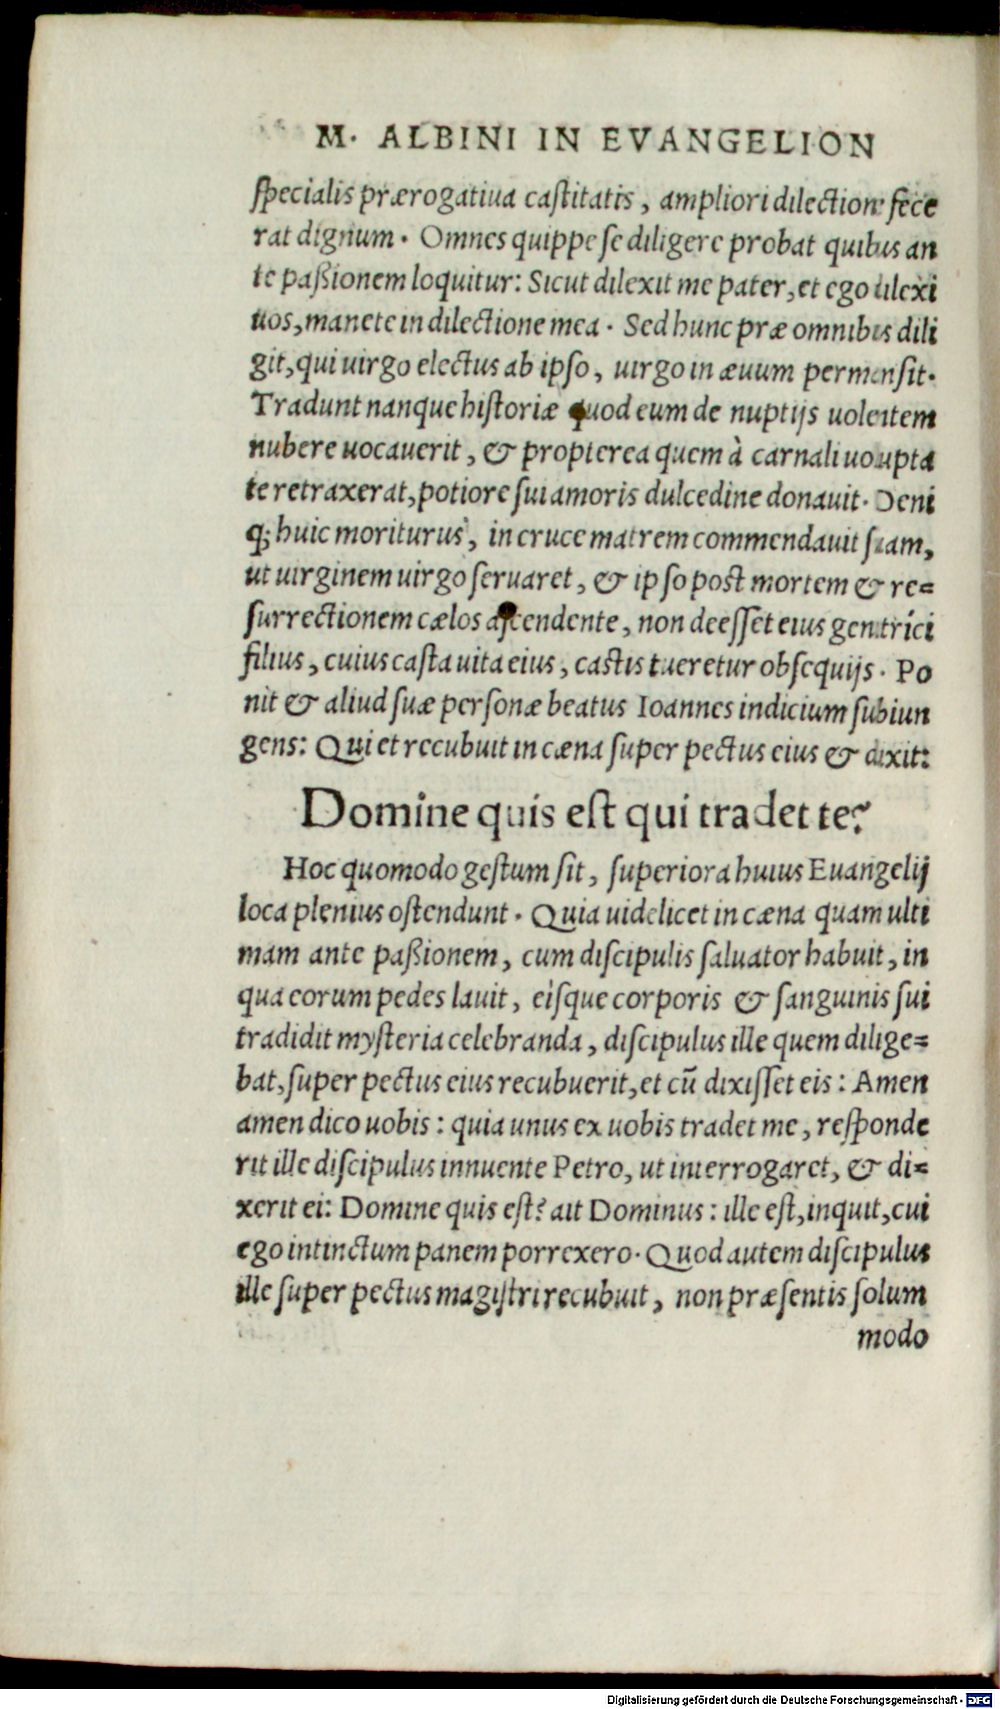 M. ALBINI IN EVANGELION
specialis prærogatiua castitatis, ampliori dilectione fece
rat dignum. Omnes quippe se diligere probat quibus an
te paßionem loquitur: Sicut dilexit me pater, et ego dilexi
uos, manete in dilectione mea. Sed hunc præ omnibus dili
git, qui uirgo electus ab ipso, uirgo in æuum permansit.
Tradunt nanque historiæ quod eum de nuptijs uolentem
nubere uocauerit, & propterea quem à carnali uolupta
te retraxerat, potiore sui amoris dulcedine donauit. Deni
q; huic moriturus, in cruce matrem commendauit suam,
ut uirginem uirgo seruaret, & ipso post mortem & re=
surrectionem cælos ascendente, non deesset eius genitrici
filius, cuius casta uita eius, castis tueretur obsequijs. Po
nit & aliud suæ personæ beatus Ioannes indicium subiun
gens: Qui et recubuit in cæna super pectus eius & dixit:
Domine quis est qui tradet te?
Hoc quomodo gestum sit, superiora huius Euangelij
loca plenius ostendunt. Quia uidelicet in cæna quam ulti
mam ante paßionem, cum discipulis saluator habuit, in
qua eorum pedes lauit, eisque corporis & sanguinis sui
tradidit mysteria celebranda, discipulus ille quem dilige=
bat, super pectus eius recubuerit, et cū dixisset eis: Amen
amen dico uobis: quia unus ex uobis tradet me, responde
rit ille discipulus innuente Petro, ut interrogaret, & di=
xerit ei: Domine quis est? ait Dominus: ille est, inquit, cui
ego intinctum panem porrexero. Quod autem discipulus
ille super pectus magistri recubuit, non præsentis solum
modo
Digitalisierung gefördert durch die Deutsche Forschungsgemeinschaft - DFG